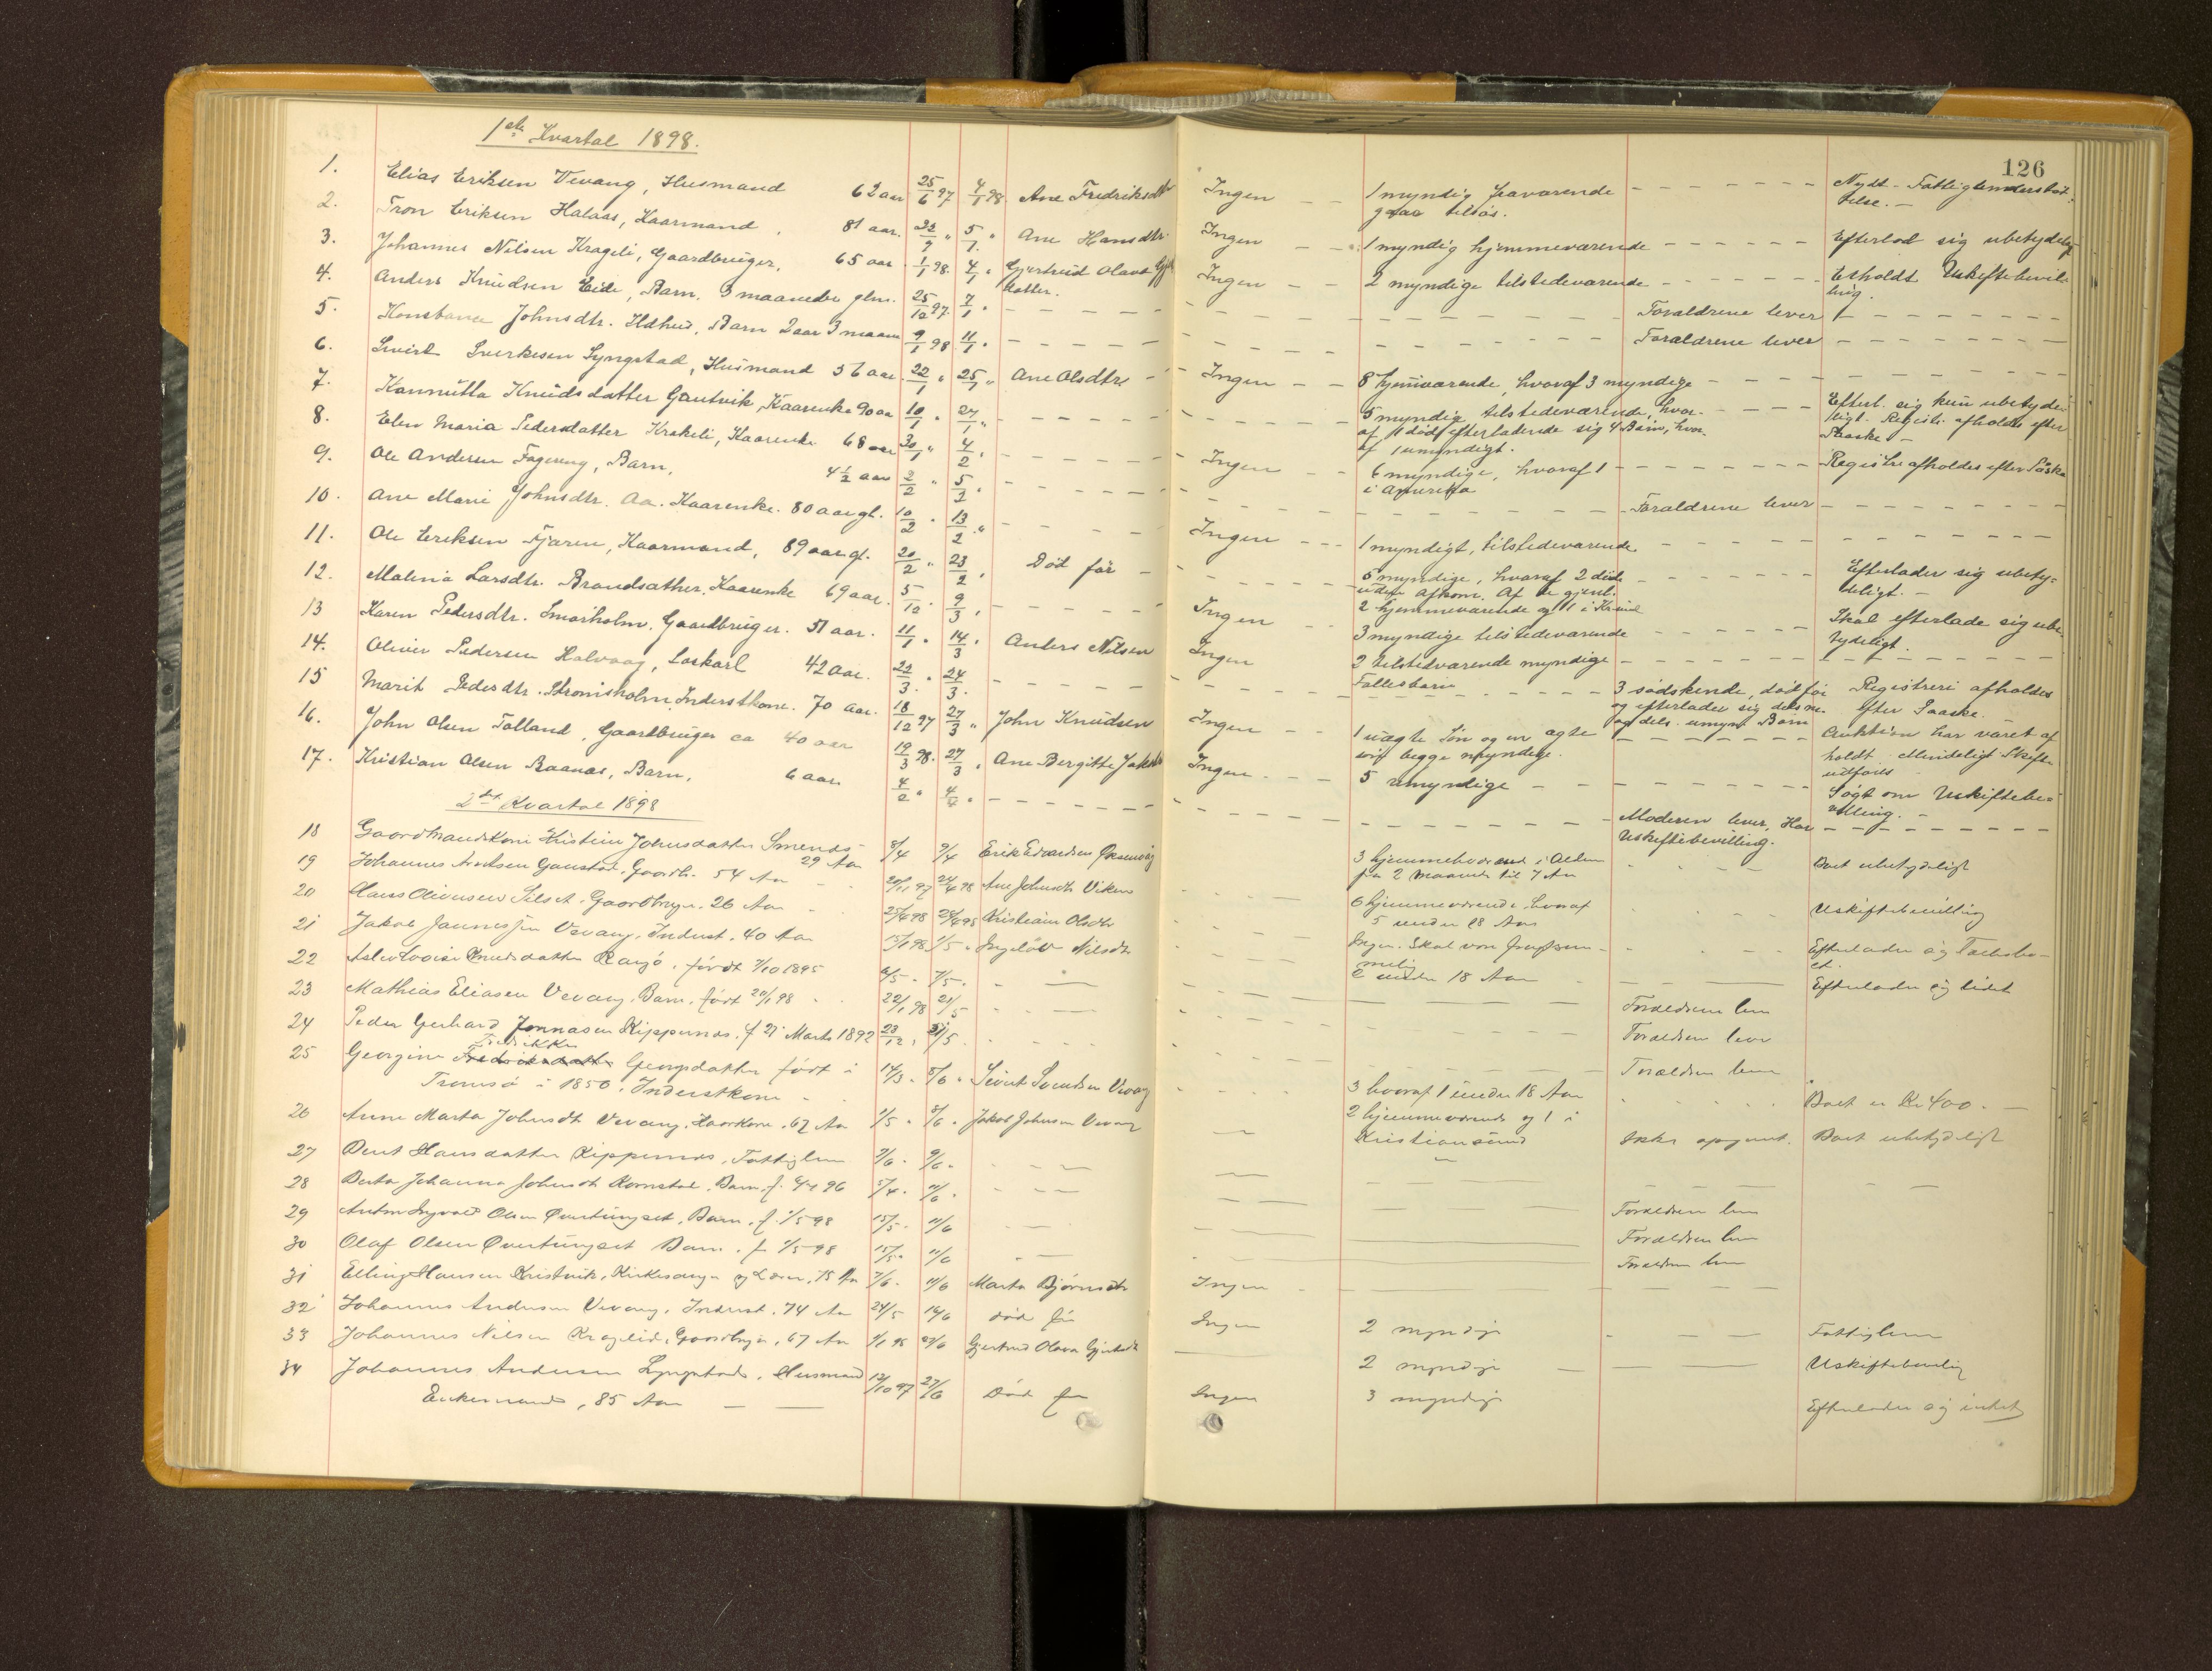 126
1ste Kvartal 1898.
1. Elias Eriksen Vevang, Husmand 62 aar 25/6 97 4/1 98 Ane Fredriksdtr Ingen 1 myndig fraværende
Nydt Fattigunderstøt-
telse.
2. Tron Eriksen Halaas, Kaarmand 81 aar. 5/1 " Ane Hansdtr. Ingen 1 myndig hjemmeværende Efterlod sig ubetydelig
3. Johannes Nilsen Krageli, Gaardbruger, 65 aar 1/1 98. 4/1 " Gjertrud Olava
datter. Ingen 2 myndige tilstedeværende Erholdt Uskiftebevil-
ling.
4. Anders Knudsen Eide, Barn, 3 maaneder glm. 25/12 97. 7/1 " Forældrene lever
5. Konstance Johnsdtr. Ildhus, Barn 2 aar 3 maan 9/1 98 11/1 " Forældrene lever
6. Sivert Sverkesen Lyngstad, Husmand 56 aar. 22/1 " 25/1 " Ane Olsdtr Ingen 8 hjemværende, hvoraf 3 myndige
7. Knudsdatter Gautvik, Kaarenke 90 aar 10/1 " 27/1 " 5 myndig tilstedeværende, hvor-
af 1 død efterladende sig 4 Børn, hvor-
af 1 umyndigt.
Efterl. sig kun ubetyde-
ligt. Registr. afholdes efter
Paaske -
8. Elen Maria Pedersdatter Krakeli, Kaarenke 68 aar 30/1 " 4/2 " Ingen 6 myndige, hvoraf 1
i Amerika Registre afholdes efter Påske
9. Ole Andersen Fagereng, Barn, 4 1/2 aar 2/2 " 5/2 " Forældrene lever
10. Ane Marie Johnsdtr. Aa. Kaarenke. 80 aar gl. 10/2 " 13/2 " Ingen 1 myndigt, tilstedeværende
11. Ole Eriksen Fjæren, Kaarmand, 89 aar gl. 20/2 " 23/2 " Død før 5 myndige, hvoraf 2 død
uden afkom. Af de gjenl.
2 hjemmeværende og 1 i
Efterlader sig ubety-
deligt.
12. Malena Larsdtr. Brandsæther, Kaarenke 69 aar. 5/12 " 9/3 " Ingen 3 myndige tilstedeværende Skal efterlade sig ube-
tydeligt.
13 Karen Pedersdtr. Smørholm, Gaardbruger. 51 aar. 11/1 " 14/3 " Anders Nilsen Ingen 2 tilstedværende myndige
Fællesbørn
14. Oliver Pedersen Halvaag, Løskarl 42 aar. 22/3 " 24/3. 3 sødskende, død før
og efterlader sig dels
og dels umynd. Børn Registreri afholdes
efter Paaske.
15 Marit Pedersdtr. Inderstkone. 70 aar. 18/12 97 27/3 " John Knudsen Ingen 1 uægte Søn og en ægte
begge myndige. Auktion har været af
holdt. Mindeligt Skifte
udføres
16. John Olsen Tolland, Gaardbruger ca 40 aar 19/3 98. 27/3 " Ane Bergitte Ingen 5 umyndige Søgt om Uskiftebe-
villing.
17. Kristian Olsen Raanes, Barn, 6 aar 4/2 " Moderen lever, Har
Uskiftebevilling.
2det Kvartal 1898
18 Gaardmandskone Kristine Johnsdatter Smenes
29 Aar 8/4 9/4 Erik Edvardsen 3 hjemmeværend i Alder
fra 2 Maaneder til 7 Aar Boet ubetydeligt
19 Johannes Arntsen Gaustad, Gaardb. 54 Aar Ane Johnsdtr Viken 6 hjemmeværende, hvoraf
5 under 18 Aar Uskiftebevilling
20 Hans Olivensen Silset, Gaardbruger. 26 Aar Kristiane Olsdtr Ingen. Skal være
Efterlader sig Fællesbo-
et.
21 Jakob Vevang, Inderst. 40 Aar Nilsdtr 2 under 18 Aar Efterlader sig lidet
22 Knudsdatter født 7/10 1895 6/5 - 7/5. Forældrene lever
23 Mathias Eliasen Vevang, Barn, født 20/1 98 22/1 98 21/5 Forældrene lever
24 Peder Gerhard Jonnasen Kippernes, f. 21 Marts 1892 23/12. Forældrene lever
25 Georgine Fredrikke Georgsdatter født i
Tromsø i 1850. Inderstkone 14/3. 5/6. Sivert Svendsen Vevang 3 hvoraf 1 under 18 Aar Boet er Kr 400.-
26 Anne Marta Johnsdtr Vevang, Kaarkone. 67 Aar 1/5 " 8/6 " Jakob Johnsen Vevang 2 hjemmeværende og 1 i
Kristiansund Ikke opgivet. Boet ubetydeligt
27 Hansdatter Kippernes, Fattiglem 7/6. 9/6.
28 Johanna Johnsdtr Kornstad, Barn, f. 96 5/4. 11/6. Forældrene lever
29 Anton Ingvald Olsen Øvertungset, Barn, f. 1/5 98 15/5. 11/6 Forældrene lever
30 Olaf Olsen Øvertungset Barn. f. 1/5 98 15/5. 11/6 Forældrene lever
31 Elling Hansen Kristvik, Kirkesanger og Lærer, 75 Aar 7/6. 11/6 Marta Bjørnsdtr Ingen
32 Johannes Andersen Vevang, Inderst. 74 Aar 24/5 14/6 død før Ingen 2 myndige Fattiglem
33 Johannes Nilsen Kragelid, Gaardbruger, 67 Aar 1/1 98 Gjertrud Olava 2 myndige Uskiftebevilling
34 Johannes Andersen Lyngstad, Husmand
Enkemand, 85 Aar 12/10 97 27/6 Død før Ingen 3 myndige Efterlader sig intet